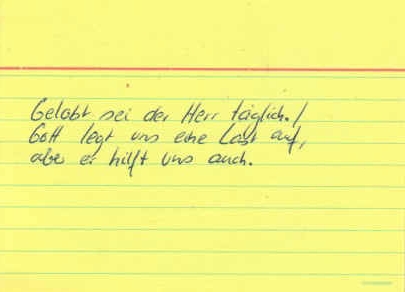 Gelobt sei der Herr täglich./
Gott legt uns eine Last auf,
aber er hilft uns auch.